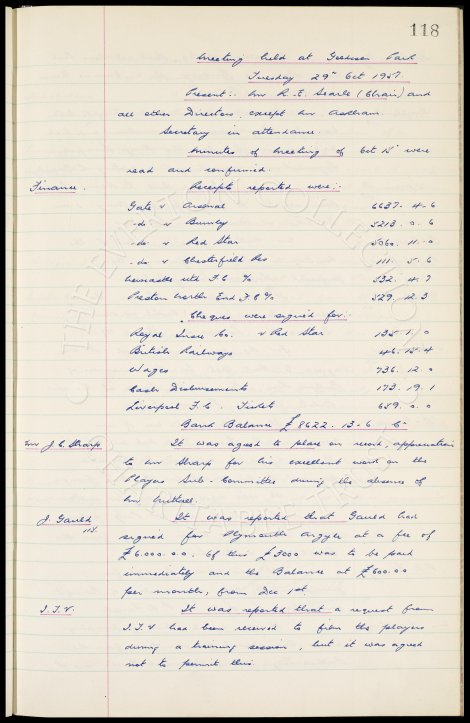 118
Meeting held at Goodison Park
Tuesday 29th Oct 1957.
Present:- Mr R. E. Searle (Chair) and
all other Directors, except Mr
Secretary in attendance.
Minutes of Meeting of Oct 15th were
read and confirmed.
Finance. Receipts reported were:-
Gate v Arsenal 6637. 4. 6
-do- v Burnley 5213. 0. 6
-do- v Red Star 5060. 11. 0
-do- v Chesterfield Res 111. 5. 6
Newcastle Utd F.C % 532. 4. 7
Preston North End F.C % 529. 12. 3
Cheques were signed for:-
Royal Insce Co. v Red Star 135. 1. 0
British Railways 46. 15. 4
Wages 736. 12. 0
Cash Disbursements 173. 19. 1
Liverpool F.C. Tickets 659. 0. 0
Bank Balance £8622. 13. 6 Cr
Mr J. C. Sharp It was agreed to place on record, appreciation
to Mr Sharp for his excellent work on the
Players Sub-Committee during the absence of
Mr
J. Gauld It was reported that Gauld had
signed for Plymouth Argyle at a fee of
£6.000.00. Of this £3000 was to be paid
immediately and the Balance at £600.00
per month, from Dec 1st.
I.T.V. It was reported that a request from
I.T.V had been received to film the players
during a training session, but it was agreed
not to permit this.
THE EVERTON COLLECTION